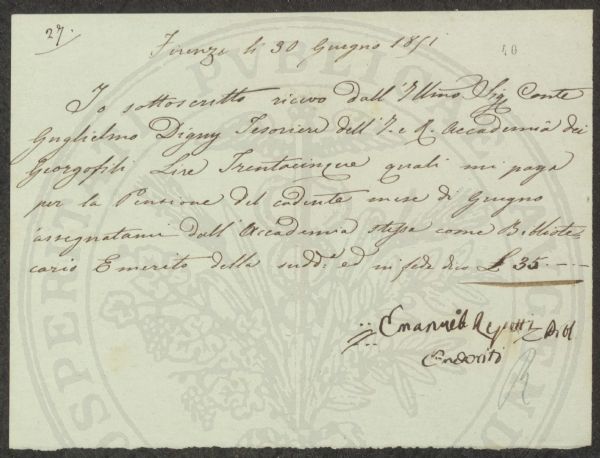 27.
Firenze li 30 Giugno 1851
40
Io sottoscritto ricevo dall'Illmo Sig Conte
Guglielmo Digny Tesoriere dell'I. e R. Accademia dei
Georgofili Lire Trentacinque quali mi paga
per la Pensione del cadente mese di Giugno
assegnatami dall'Accademia stessa come Bibliote
cario Emerito della sudd.a ed in fede dico £ 35.
Emanuele Repetti Bibl
Emerito
PUBLICAE
PROSPERITATI